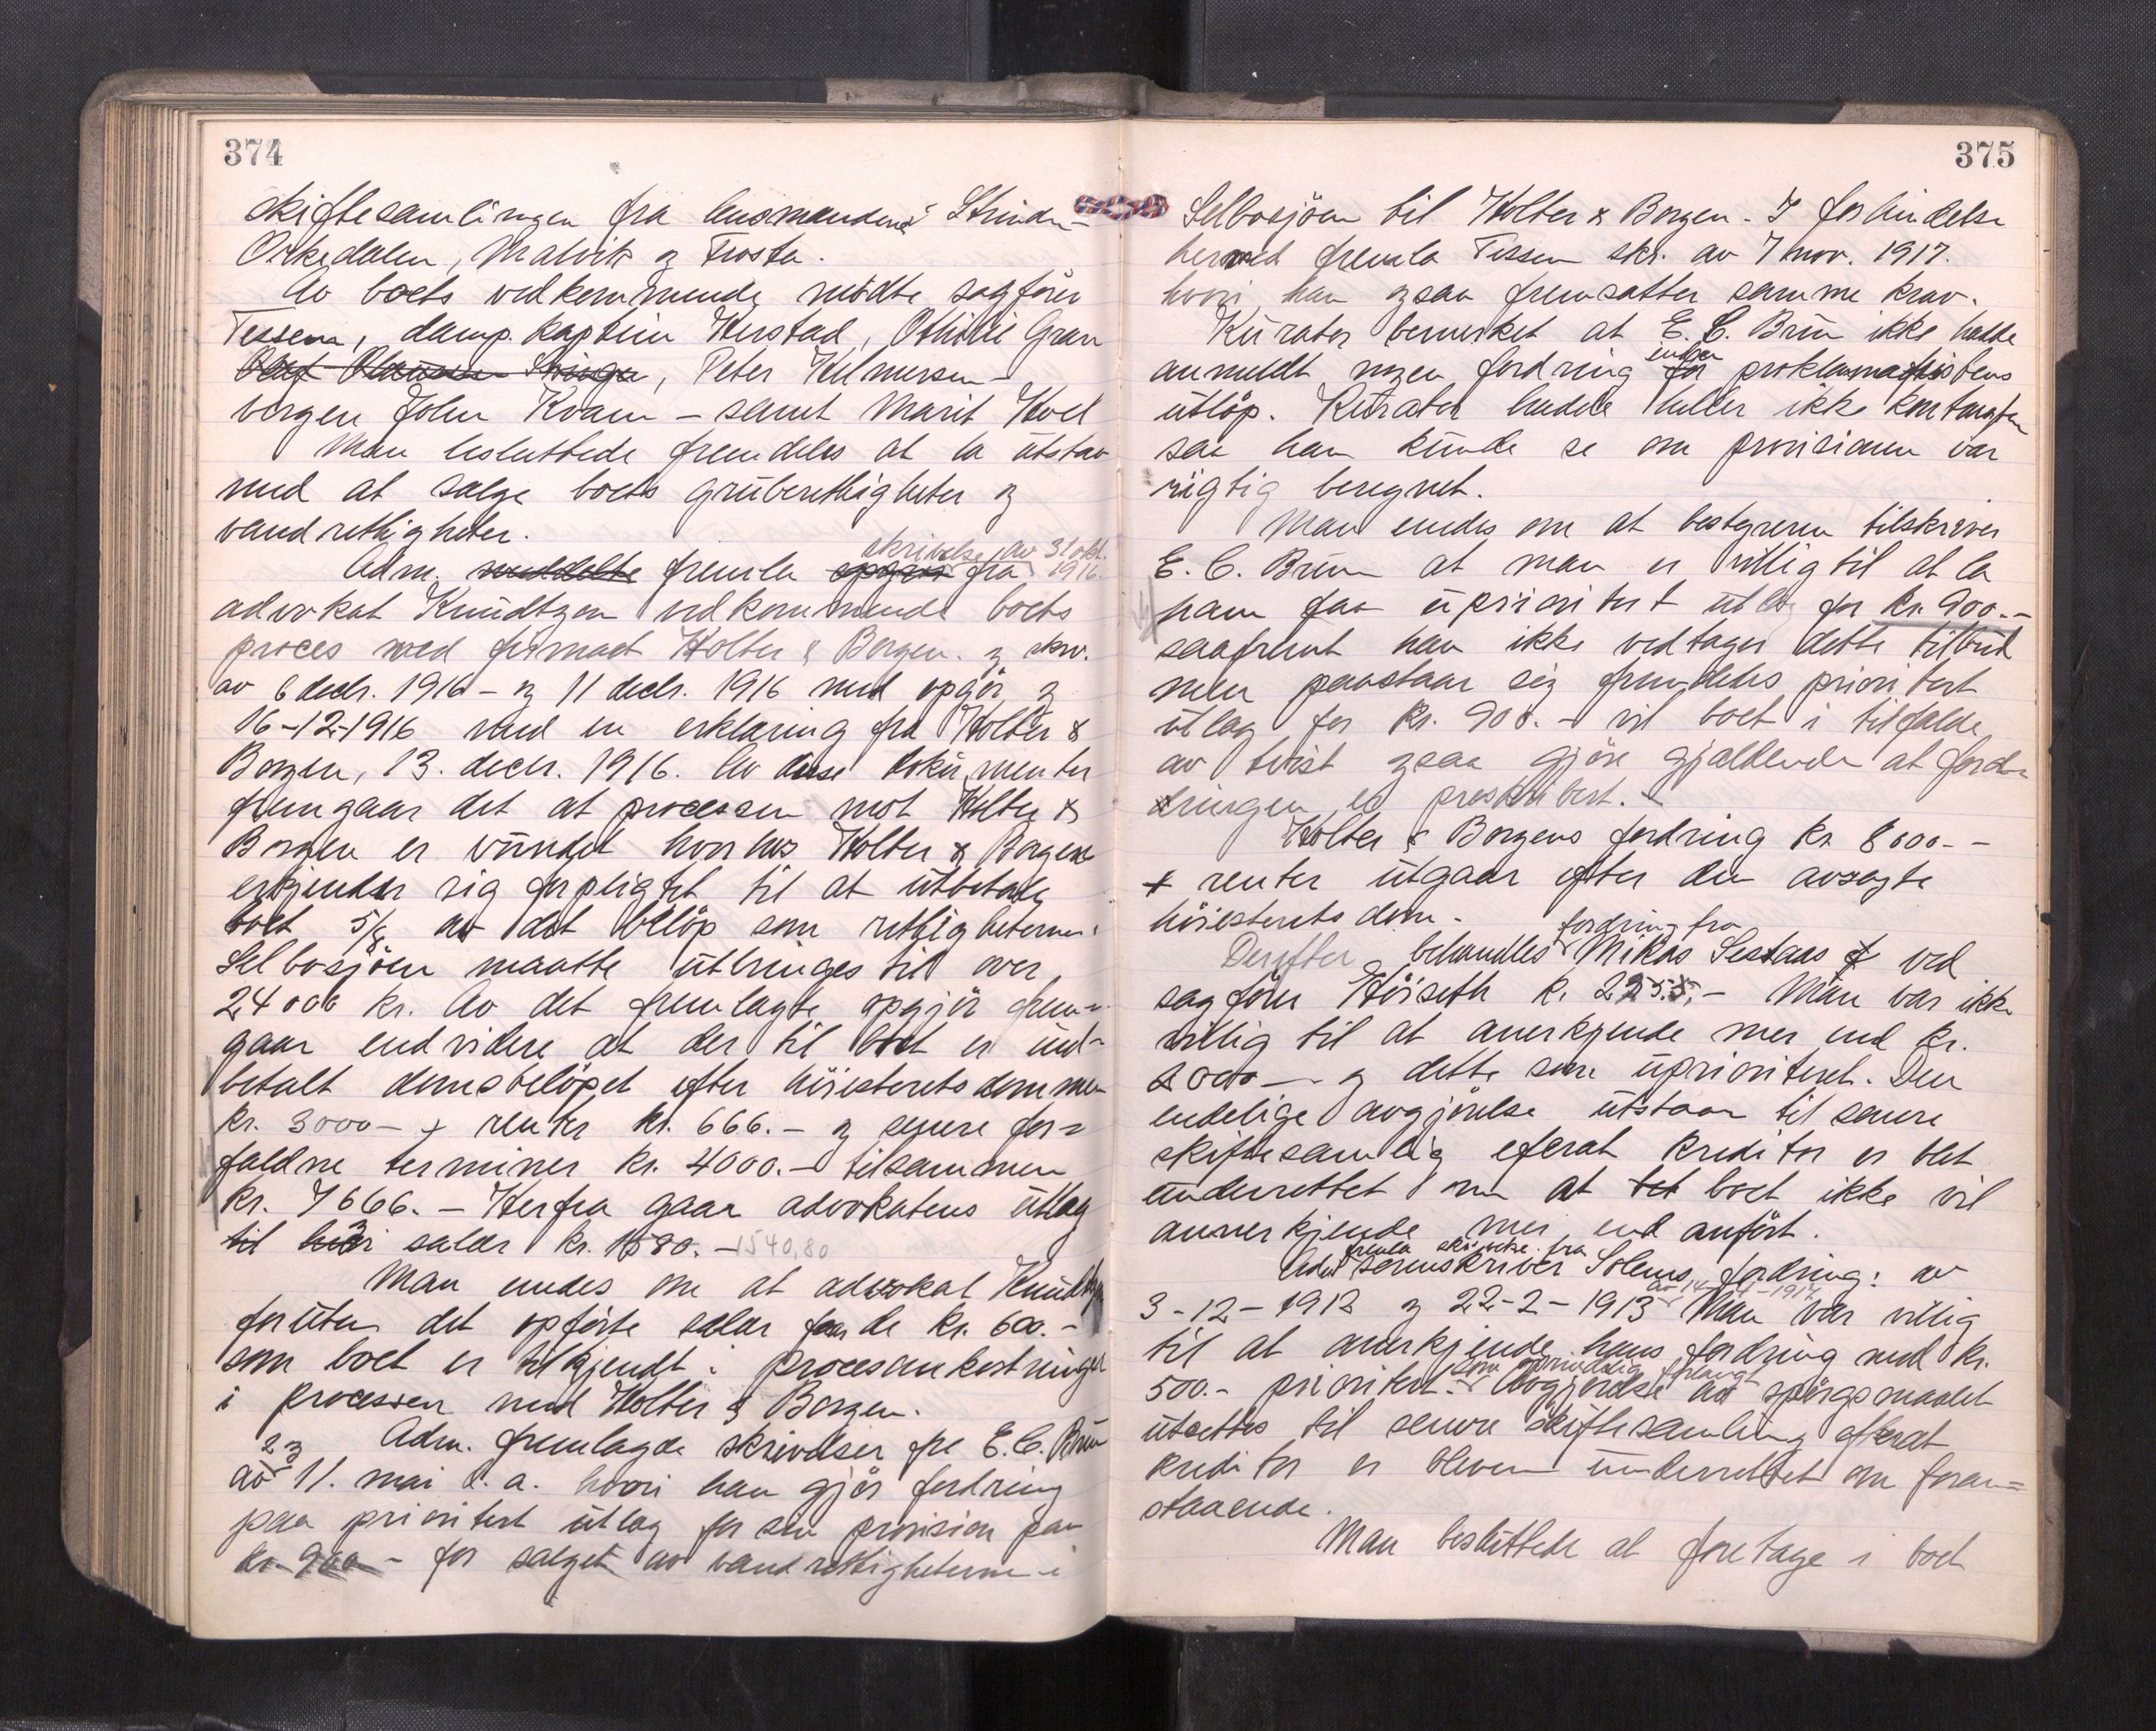 374
skiftesamlingen fra lensmændene i Strinden
Orkedalen, Malvik og Frosta.
Av boets vedkommende mødte sagfører
Tessem, damp. kaptein Herstad, Othilie Gran
Olaf Olaussen, Peter Hilmersen
vergen John Kvam – samt Marit Hoel
Man besluttede fremdeles at la utstaa
med at sælge boets gruberettigheter og
vandrettigheter.
skrivelse av 31 okt.
Adm. meddelte fremla opgjør fra 1916
advokat Knudtzon vedkommende boets
proces med firmaet Holter & Borgen. og skr.
av 6 decbr. 1916 – og 11 decbr. 1916 med opgjør og
16-12-1916 med en erklæring fra Holter &
Borgen, 13. decbr. 1916. Av disse dokumenter
fremgaar det at processen mot Holter &
Borgen er vundet hvorhos Holter & Borgen
erkjender sig forpligtet til at utbetale
boet 5/8 av det beløp som rettigheterne i
Selbosjøen maatte utbringes til over
24000 kr. Av det fremlagte opgjør frem=
gaar endvidere at der til boet er ind-
betalt domsbeløpet efter høiesteretsdommen
kr. 3000 – + renter kr. 666.– og senere for=
faldne terminer kr. 4000.– tilsammen
kr. 7666.– Herfra gaar advokatens utlæg
til salær kr. 1580.– 1540,80
Man enedes om at advokat Knudtzon
foruten det opførte salær faar de kr. 600.–
som boet er tilkjendt i procesomkostninger
i processen med Holter & Borgen.
2 og Adm. fremlagde skrivelser fra E. C. Brun
av 11. mai d. a. hvori han gjør fordring
paa prioritert utlæg for sin provision paa
kr. 900 – for salget av vandrettigheterne i
375
Selbosjøen til Holter & Borgen. I forbindelse
hermed fremla Tessem skr. av 7 nov. 1917.
hvori han ogsaa fremsatter samme krav.
Kurator bemerket at E. C. Brun ikke hadde
inden
anmeldt nogen fordring for proklamafristens
utløp. Kurator hadde heller ikke kontrakten
saa han kunde se om provisionen var
rigtig beregnet.
Man enedes om at bestyreren tilskriver
E. C. Brun at man er villig til at la
ham faa uprioritert utlæg for kr. 900.–
saafremt han ikke vedtager dette tilbud
men paastaar sig fremdeles prioritert
utlæg for kr. 900.– vil boet i tilfælde
av tvist ogsaa gjøre gjældende at ford-
ringen er preskribert.
Holter & Borgens fordring kr. 8000.–
+ renter utgaar efter den avsagte
høiesteretsdom.
fordring fra
Derefter behandles Mikas Sestaas ved
sagfører Höiseth kr. 2255.– Man var ikke
villig til at anerkjende mer end kr.
1000 – og dette som uprioritert. Den
endelige avgjørelse utstaar til senere
skiftesamling efterat kreditor er blet
underrettet om at boet ikke vil
annerkjende mer end anført.
fremla skrivelse fra
Adm. sorenskriver Solems fordring: av
3-12-1912 og 22-2-1913 Man var villig
til at anerkjende hans fordring med kr.
som oprindelig forlangt
500.– prioritert. Avgjørelse av spørgsmaalet
utsættes til senere skiftesamling efterat
kreditor er bleven underrettet om foran=
staaende.
Man besluttede at foretage i boet